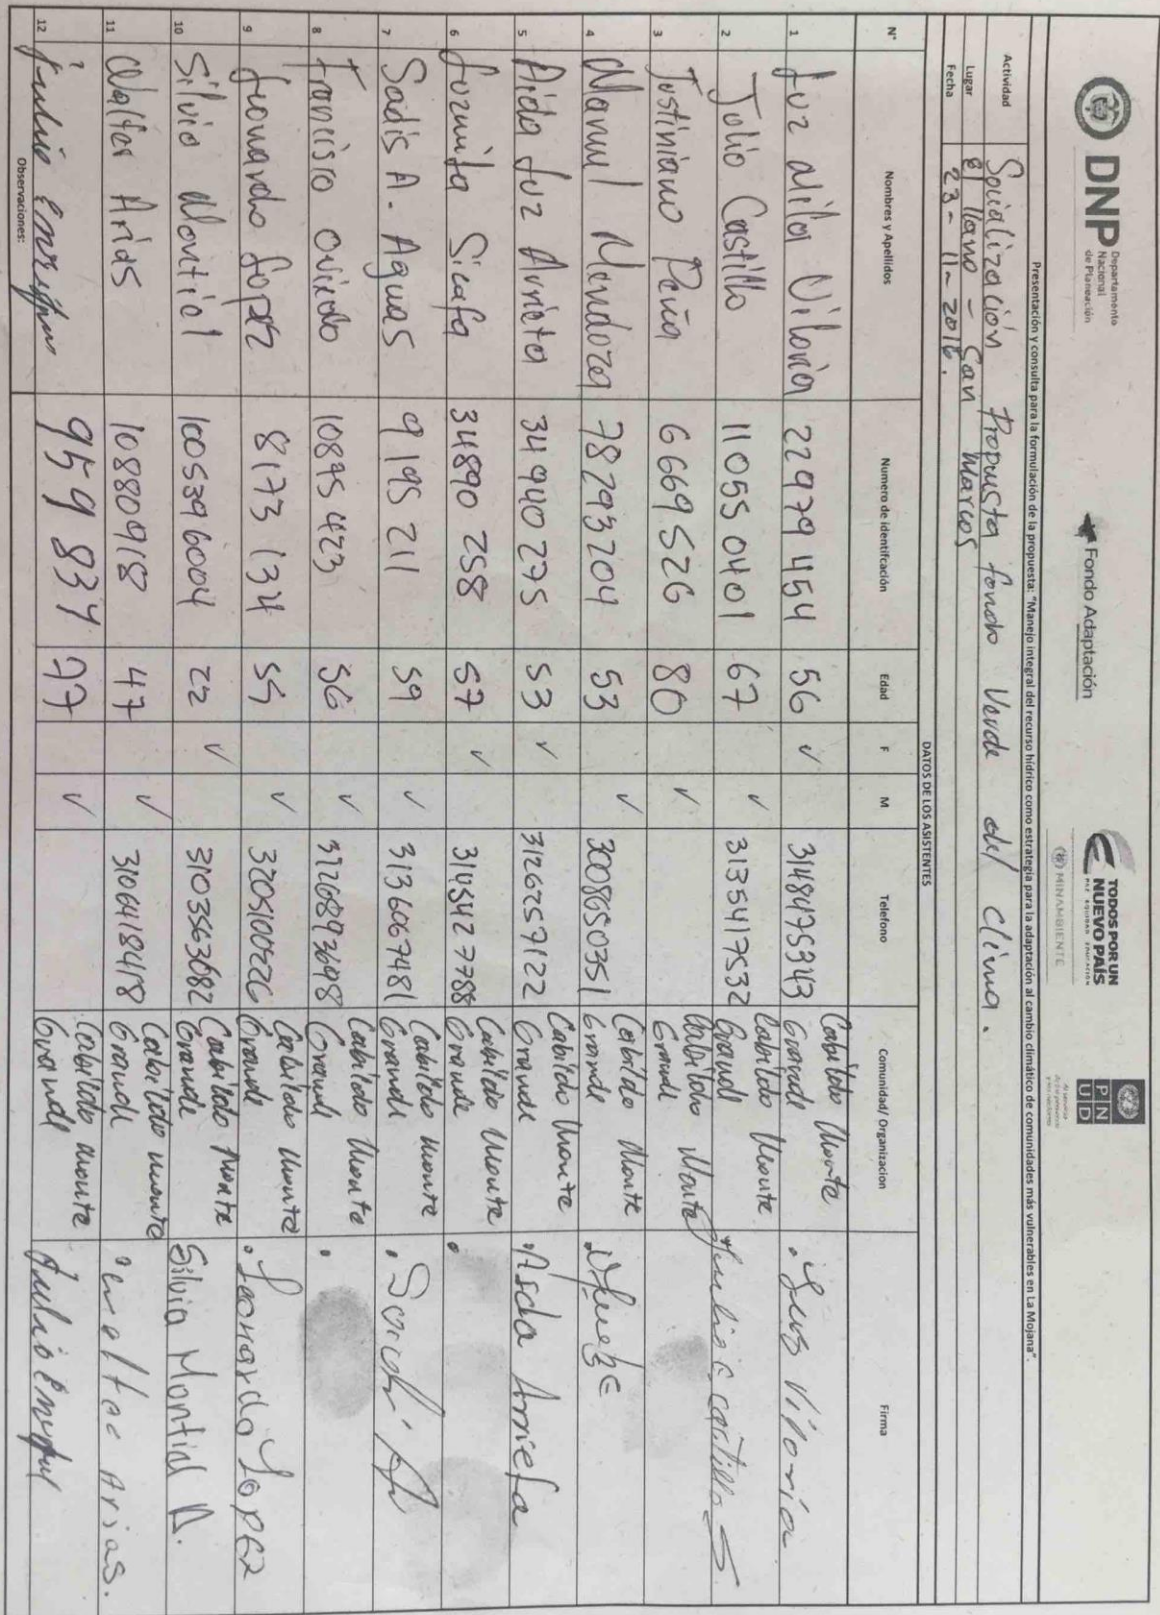 DNP Departamento
Nacional
de Planeación
Fondo Adaptación
TODOS POR UN
NUEVO PAÍS
PAZ EQUIDAD EDUCACIÓN
MINAMBIENTE
PN
UD
Presentación y consulta para la formulación de la propuesta: "Manejo integral del recurso hídrico como estrategia para la adaptación al cambio climático de comunidades más vulnerables en La Mojana".
Actividad Socialización Propuesta fondo Verde del Clima.
Lugar El llano - San Marcos
Fecha 23-11-2016.
DATOS DE LOS ASISTENTES
N° Nombres y Apellidos Numero de identificación Edad F M Telefono Comunidad/Organizacion Firma
1 Luz Mila Viloria 22979454 56 ✓ 3148475343 Cabildo Monte Grande Luz Viloria
2 Julio Castillo 11055040 67 ✓ 3135417532 Cabildo Monte Grande Julio c castillo S
3 Justiniano Peña 6669526 80 ✓ Cabildo Monte Grande
4 Manuel Mendoza 78293204 53 ✓ 3008650351 Cabildo Monte Grande
5 Aida Luz Arrieta 34940275 53 ✓ 3126257122 Cabildo Monte Grande Aida Arrieta
6 Luzmila Sicafa 34890258 57 ✓ 3145427788 Cabildo Monte Grande
7 Sadis A. Aguas 9195211 59 ✓ 3136067481 Cabildo Monte Grande
8 Francisco Oviedo 10875423 56 ✓ Cabildo Monte Grande
9 Leonardo Lopez 8173134 ✓ 3205100526 Cabildo Monte Grande Leonardo Lopez
10 Silvia Montiel 1005396004 22 ✓ 3103563082 Cabildo Monte Grande Silvia Montiel A.
11 Walter Arias 10880918 47 ✓ 3106418418 Cabildo Monte Grande walter Arias.
12 Julio 959834 77 ✓ Cabildo Monte Grande Julio
Observaciones: